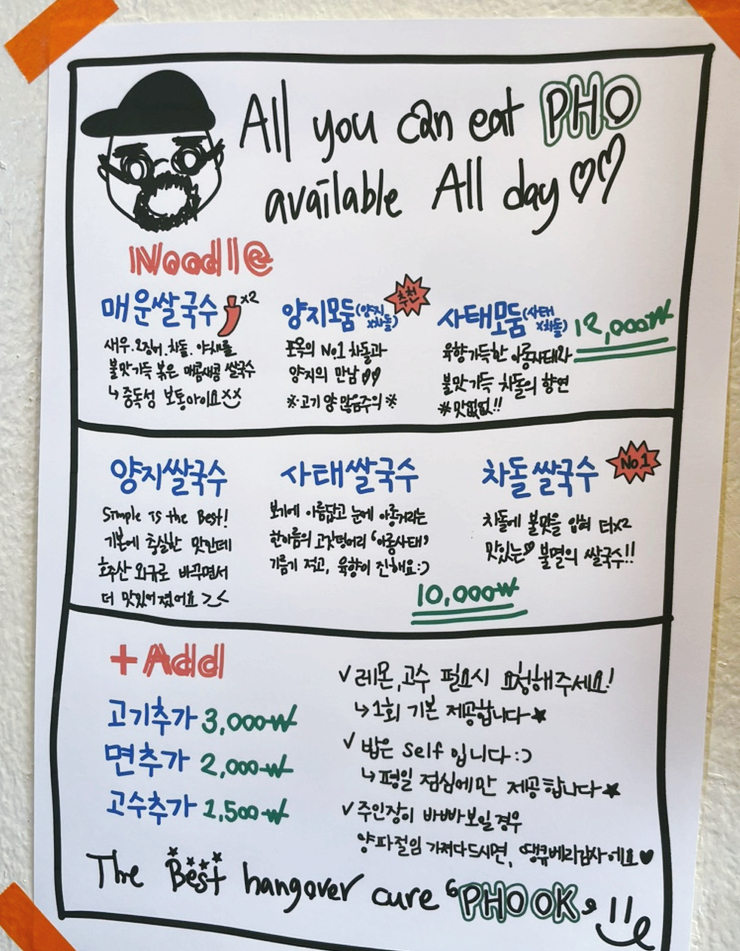 All you can eat PHO
available All day
Noodle
매운쌀국수 x2
새우.오징어.차돌.야채를
불맛가득 볶은 매콤새콤 쌀국수
↳ 중독성 보통아이요xx
양지모둠(양지x차돌)
추천
포옥의 No1 차돌과
양지의 만남
※고기 양 많음주의※
사태모둠(사태x차돌)
12,000₩
육향가득한 아롱사태와
불맛가득 차돌의 향연
※맛없없!!
양지쌀국수
Simple is the Best!
기본에 충실한 맛인데
호주산 와규로 바꾸면서
더 맛있어졌어요 >.<
사태쌀국수
보기에 아름답고 눈에 아롱거리는
한아름의 고깃덩어리 "아롱사태"
기름기 적고, 육향이 진해요:)
차돌쌀국수
No.1
차돌에 불맛을 입혀 더x2
맛있는 불멸의 쌀국수!!
10,000₩
+Add
고기추가 3,000₩
면추가 2,000₩
고수추가 1,500₩
✓레몬,고수 필요시 요청해주세요!
↳1회 기본 제공합니다★
✓밥은 Self 입니다:)
↳평일 점심에만 제공합니다★
✓주인장이 바빠보일경우
양파절임 가져다드시면, 땡큐베리감사에요♥
The Best hangover cure "PHO OK"